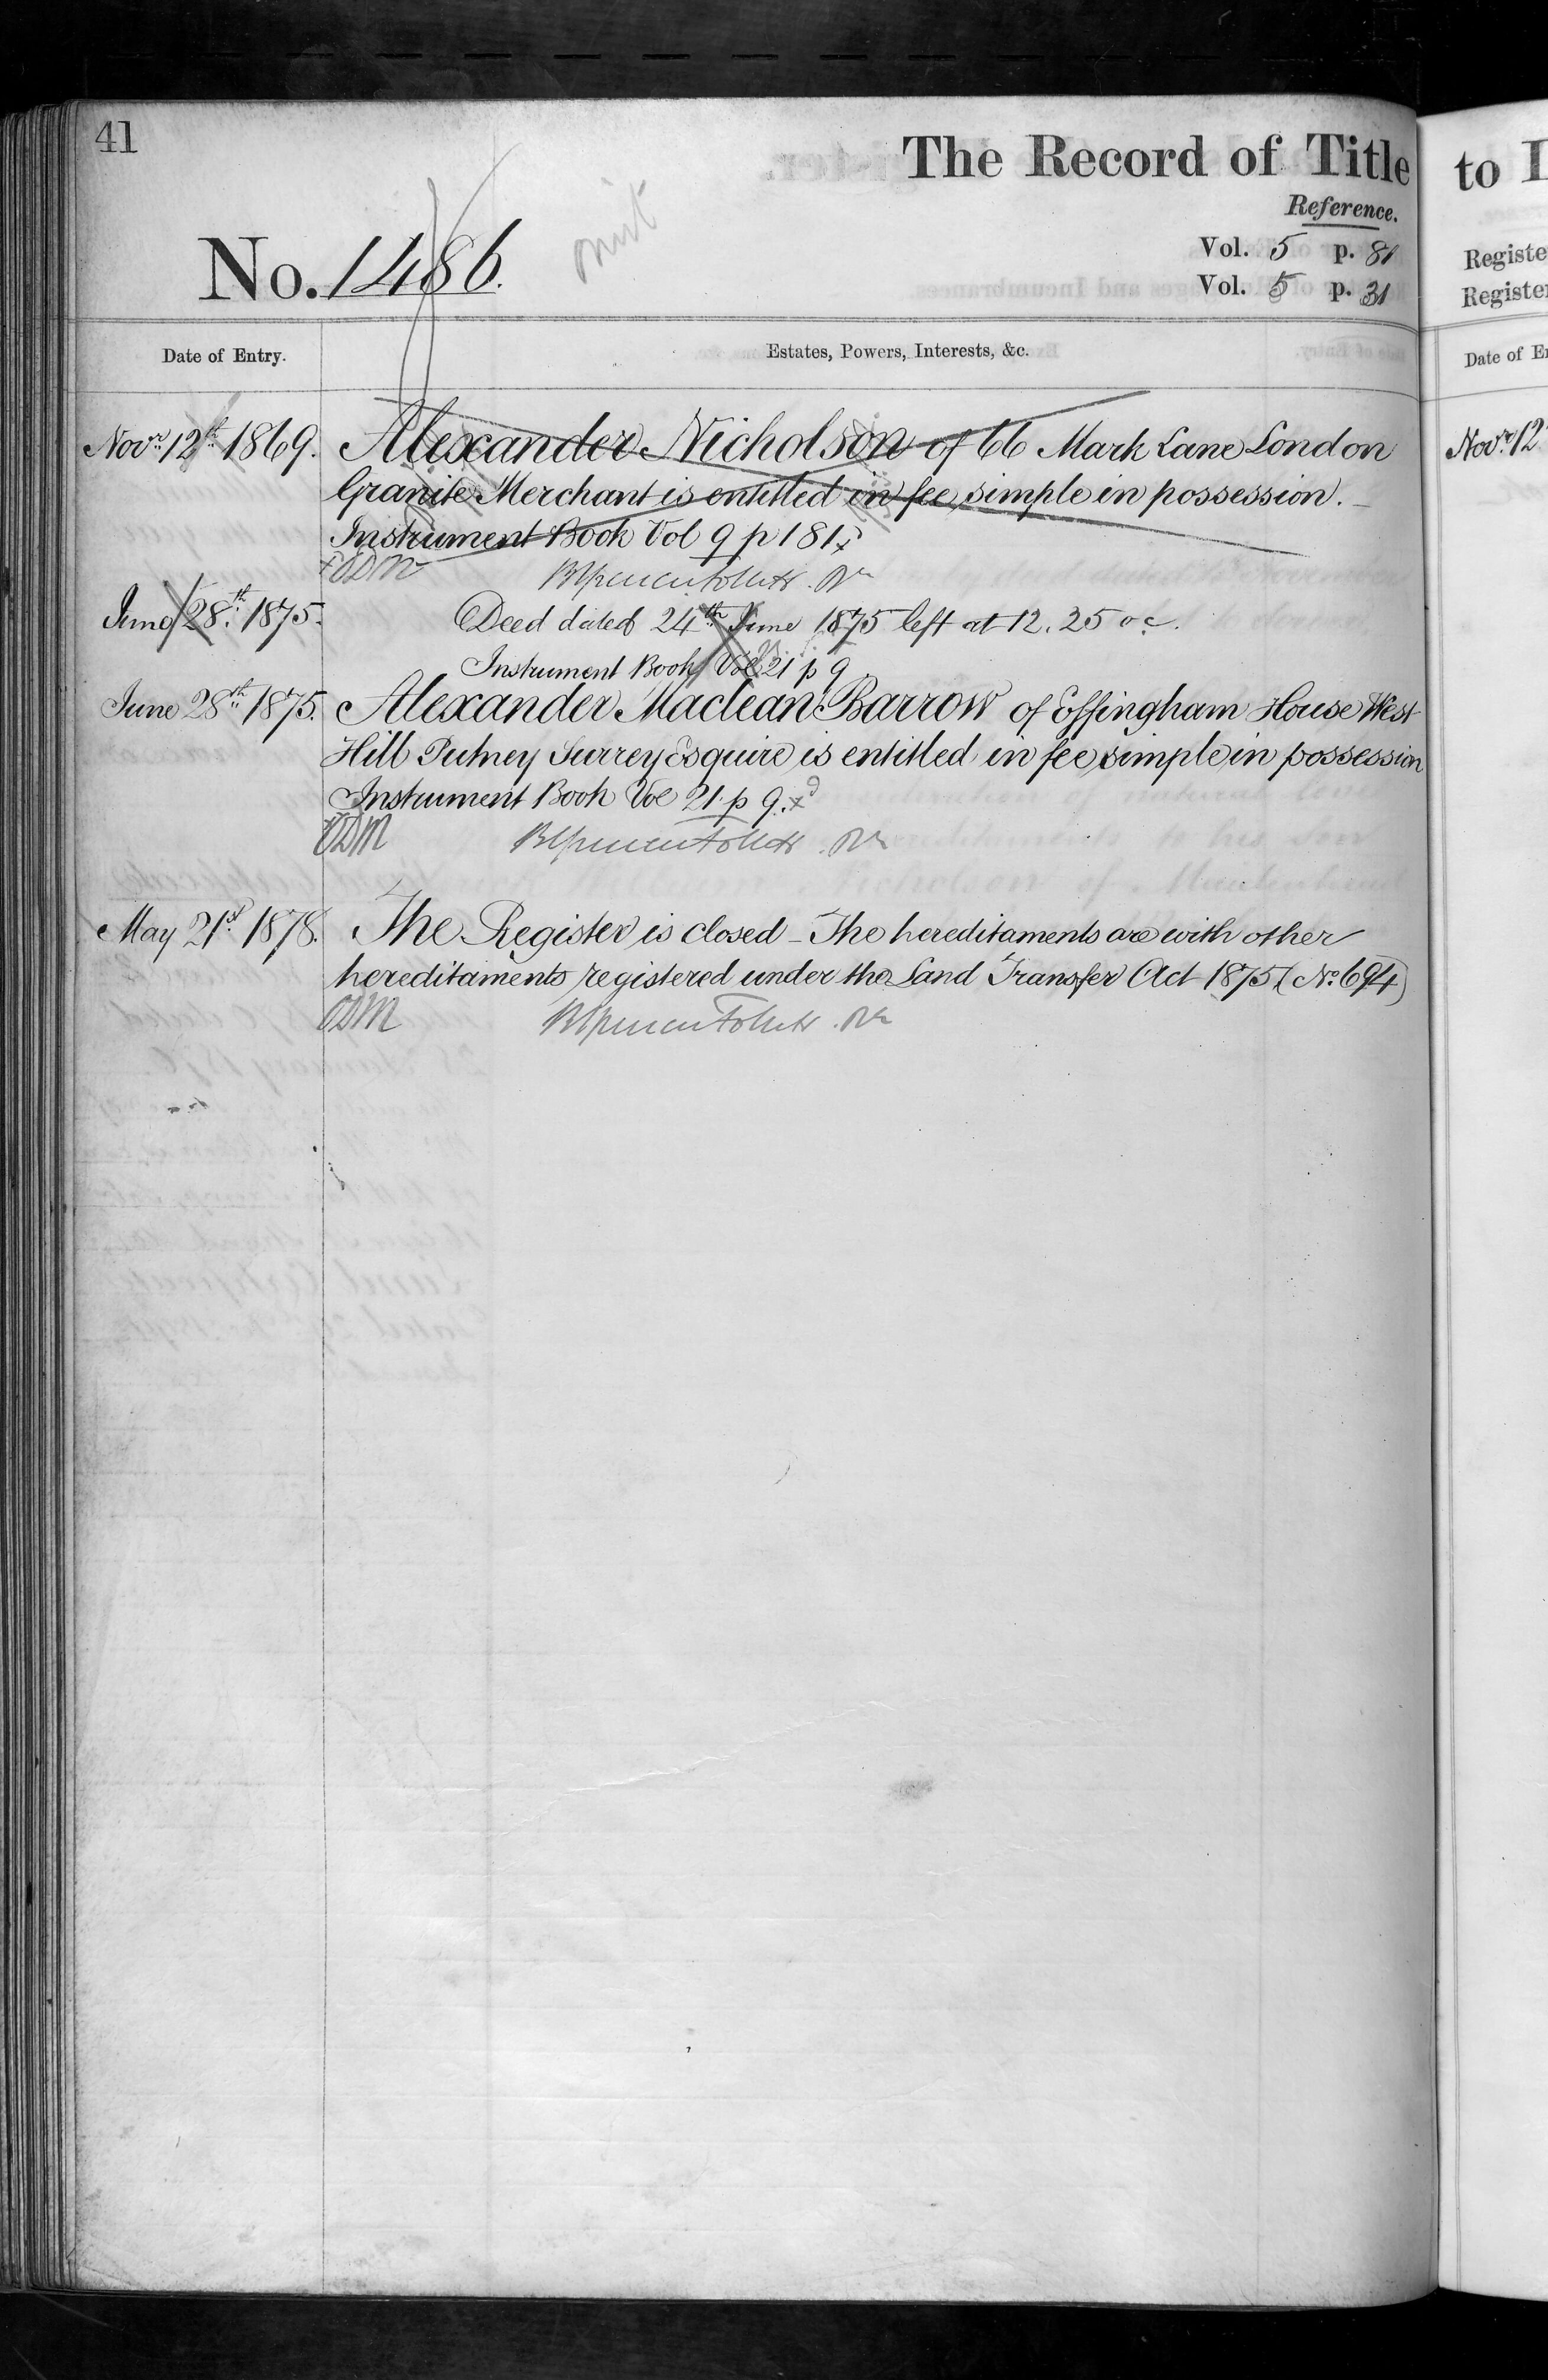 41
The Record of Title
Reference.
No. 1486.
omit
Vol. 5 p. 81
Vol. 5 p. 31
Date of Entry.
Estates, Powers, Interests, &c.
Novr. 12th. 1869. Alexander Nicholson of 66 Mark Lane London
Granite Merchant is entitled in fee simple in possession.
Instrument Book Vol 9 p 181
June 28th. 1875. Deed dated 24th June 1875 left at 12.25 oc.
Instrument Book Vol 21 p 9
June 28th. 1875. Alexander Maclean Barrow of Effingham House West
Hill Putney Surrey Esquire is entitled in fee simple in possession
Instrument Book Vol 21 p 9.
May 21st. 1878. The Register is closed - The hereditaments are with other
hereditaments registered under the Land Transfer Act 1875 (No. 694)
to
Registe
Register
Date of E
Novr. 12